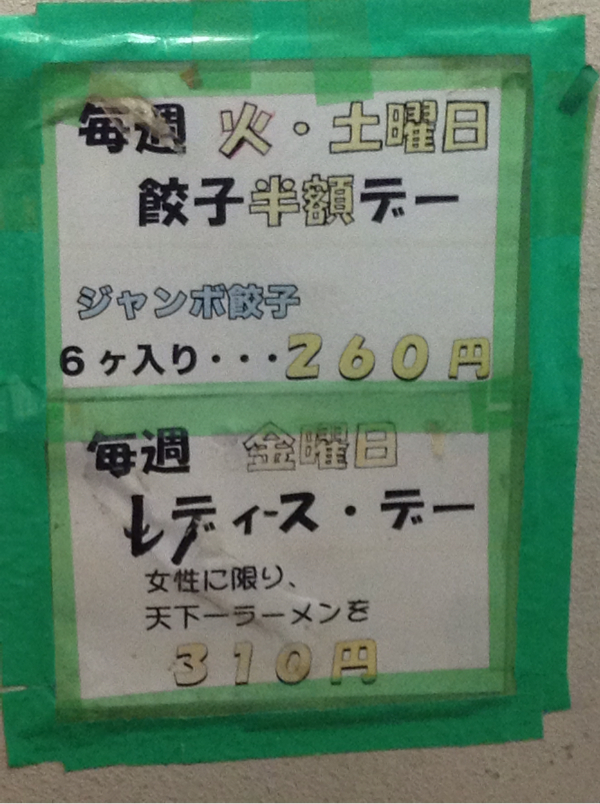 毎週 火・土曜日
餃子半額デー
ジャンボ餃子
6ヶ入り・・・260円
毎週 金曜日
レディース・デー
女性に限り、
天下一ラーメンを
310円